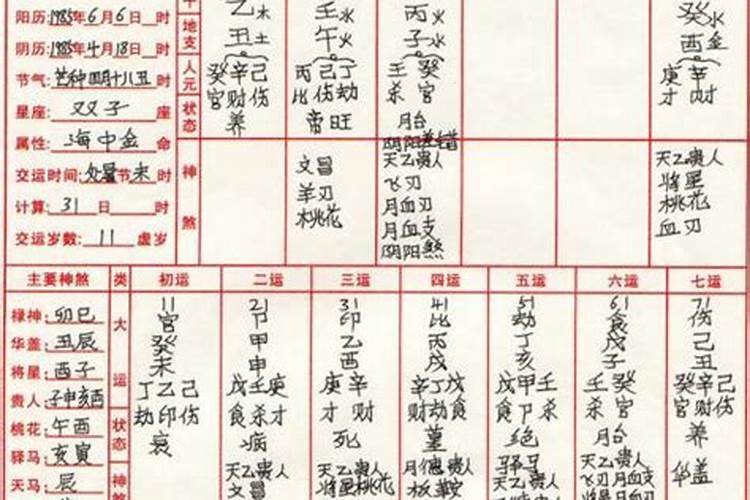 阳历:1985年6月6日 时
阴历:1985年4月18日 时
节气:芒种四十八丑
星座:双子座
属性:海中金命
交运时间:处暑节未时
计算:31日 时
交运岁数:11虚岁
干
地支
人元
状态
神煞
乙木
丑土
癸辛己
官财伤
养
壬水
午火
丙己丁
比伤劫
帝旺
文昌
羊刃
桃花
丙火
子水
壬癸
杀官
月台
阴阳差错
天乙贵人
飞刃
月血刃
月血支
阴阳煞
癸水
酉金
庚辛
才财
天乙贵人
将星
桃花
血刃
主要神煞 类 初运 二运 三运 四运 五运 六运 七运
禄神:卯巳
华盖:丑辰
将星:酉子
贵人:子申亥酉
桃花:午酉
驿马:亥寅
天马:辰
大运
状态
神煞
11
官
癸
未
丁乙己
劫印伤
衰
21
卩
甲
申
戊壬庚
食杀才
病
天乙贵人
文昌
31
印
乙
酉
庚辛
才财
死
天乙贵人
将星桃花
41
比
丙
戌
辛丁戊
财劫食
墓
月德贵人
板鞍
51
劫
丁
亥
戊甲壬
食卩杀
绝
驿马
天乙贵人
61
食
戊
子
壬癸
杀官
月台
天乙贵人
月血支
71
伤
己
丑
癸辛己
官财伤
养
华盖